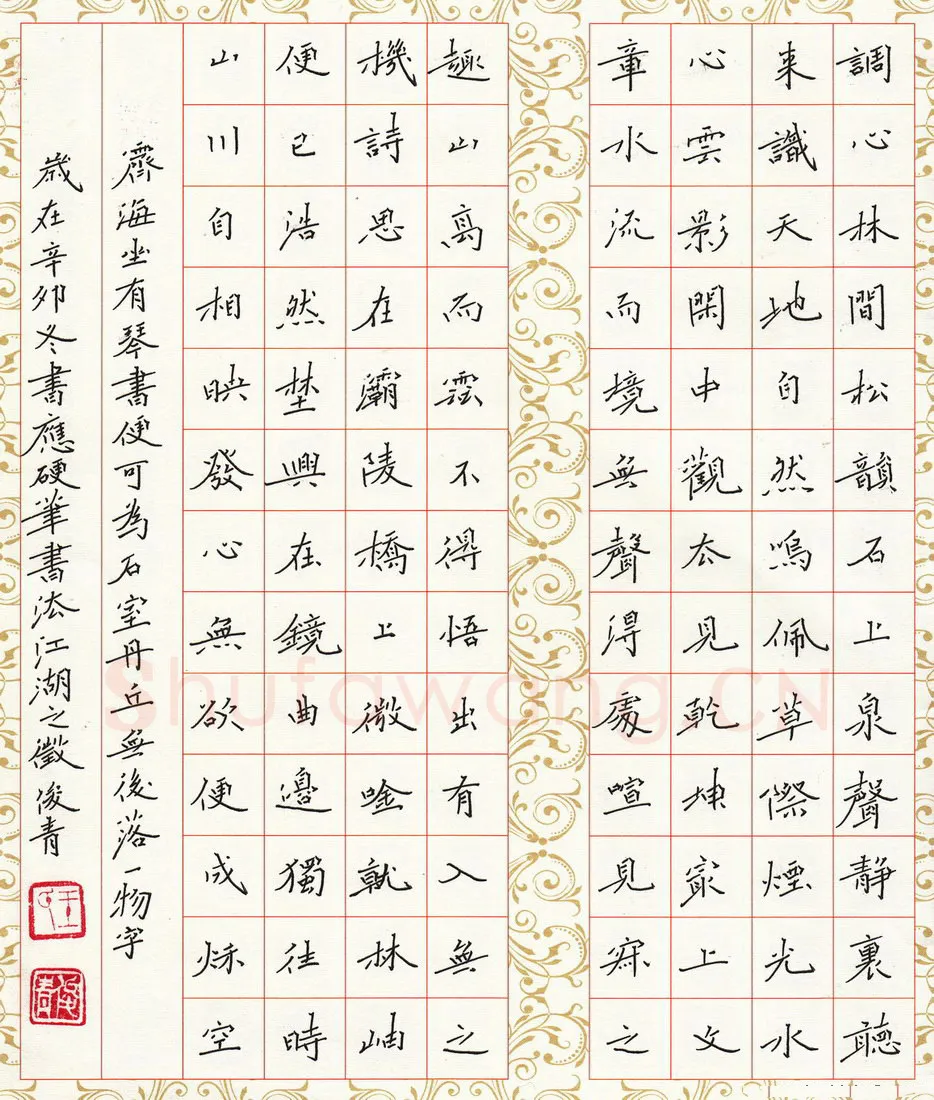 調心林間松韻石上泉聲靜裏聽
來識天地自然鳴佩草際煙光水
心雲影閑中觀去見乾坤最上文
章水流而境無聲得處喧見寂之
趣山高而雲不得悟出有入無之
機詩思在灞陵橋上微唫就林岫
便已浩然埜興在鏡曲邊獨往時
山川自相映發心無欲便成秌空
霽海坐有琴書便可為石室丹丘無後落一物字
歲在辛卯冬書應硬筆書法江湖之徵俊青
俊青
Shufawang.CN